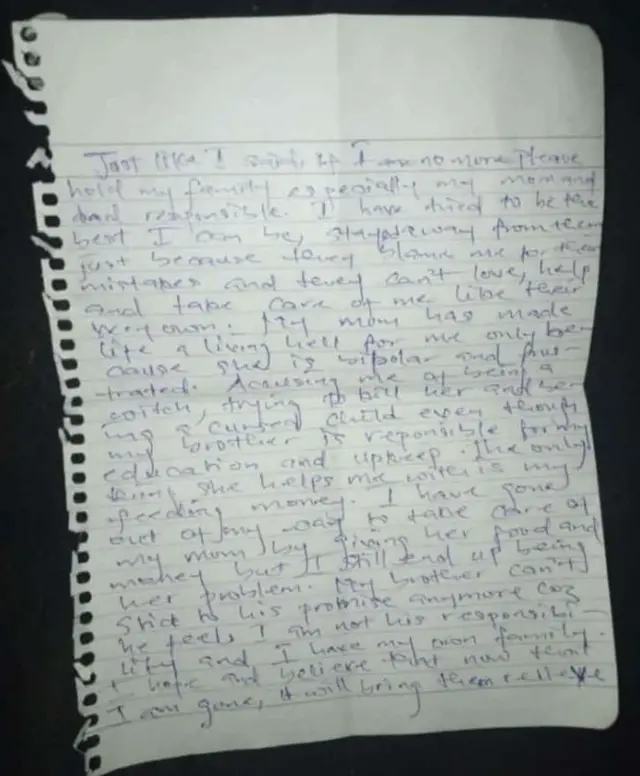 Just like I said, if I am no more please
hold my family especially my mom and
dad responsible. I have tried to be the
best I can be, stayed away from them
just because they blame me for their
mistakes and they can't love, help
and take care of me like their
very own. My mom has made
life a living hell for me only be-
cause she is bipolar and frus-
trated. Accusing me of being a
witch, trying to kill her and be-
ing a cursed child even though
my brother is reponsible for my
education and upkeep. The only
thing she helps me with is my
feeding money. I have gone
out of my way to take care of
my mom by giving her food and
money but I still end up being
her problem. My brother can't
stick to his promise anymore coz
he feels I am not his responsibi-
lity and I have my own family.
I hope and believe that now that
I am gone, it will bring them relieve